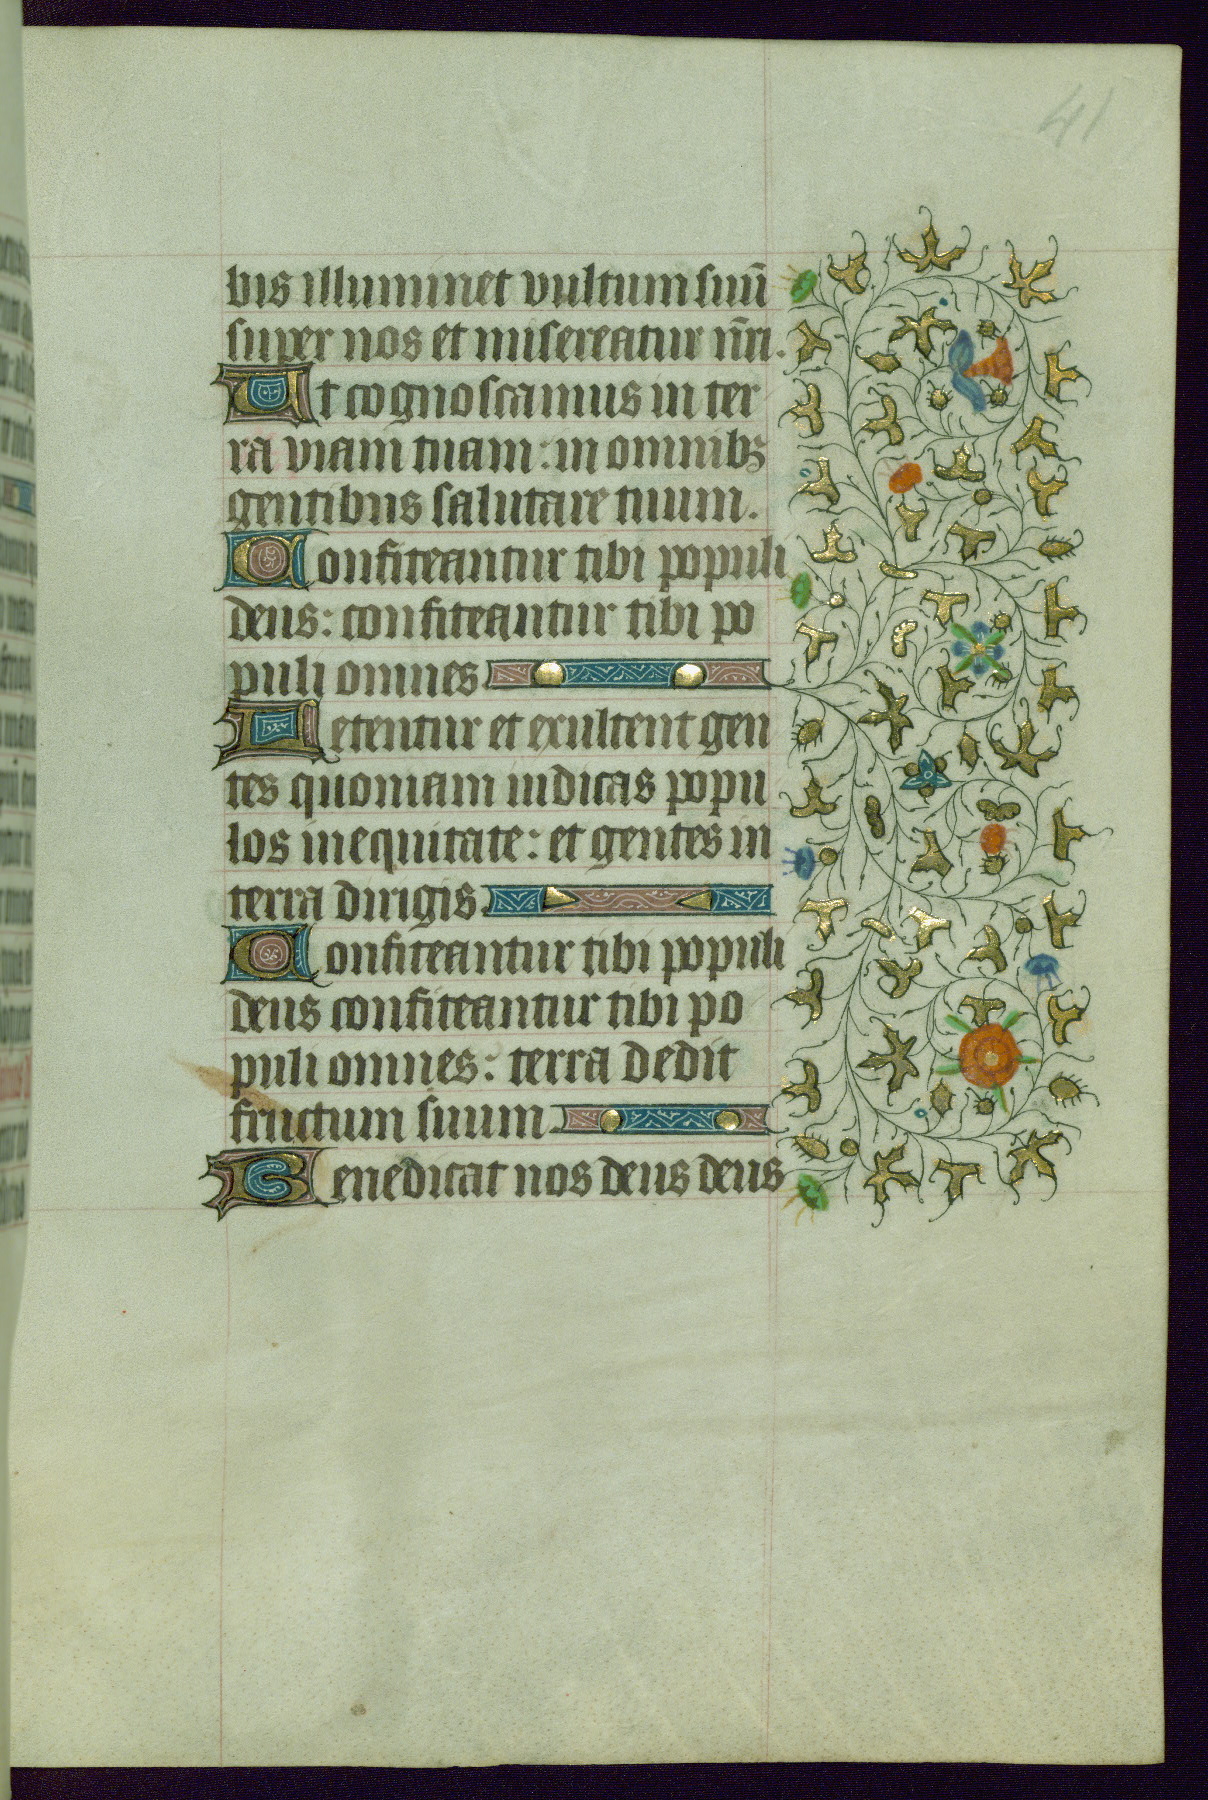 41
bis illuminet vultum suū
super nos et misereatur n̄ri.
Ut cognoscamus in ter
ra viam tuam: in omnibꝫ
gentibus salutare tuum.
Confiteantur tibi populi
deus: confiteantur tibi po
puli omnes
Letentur et exultent gen
tes quoniam iudicas popu
los in equitate: et gentes in
terra dirigis
Confiteantur tibi populi
deus confiteantur tibi po
puli omnes: terra dedit
fructum suum
Benedicat nos deus deus